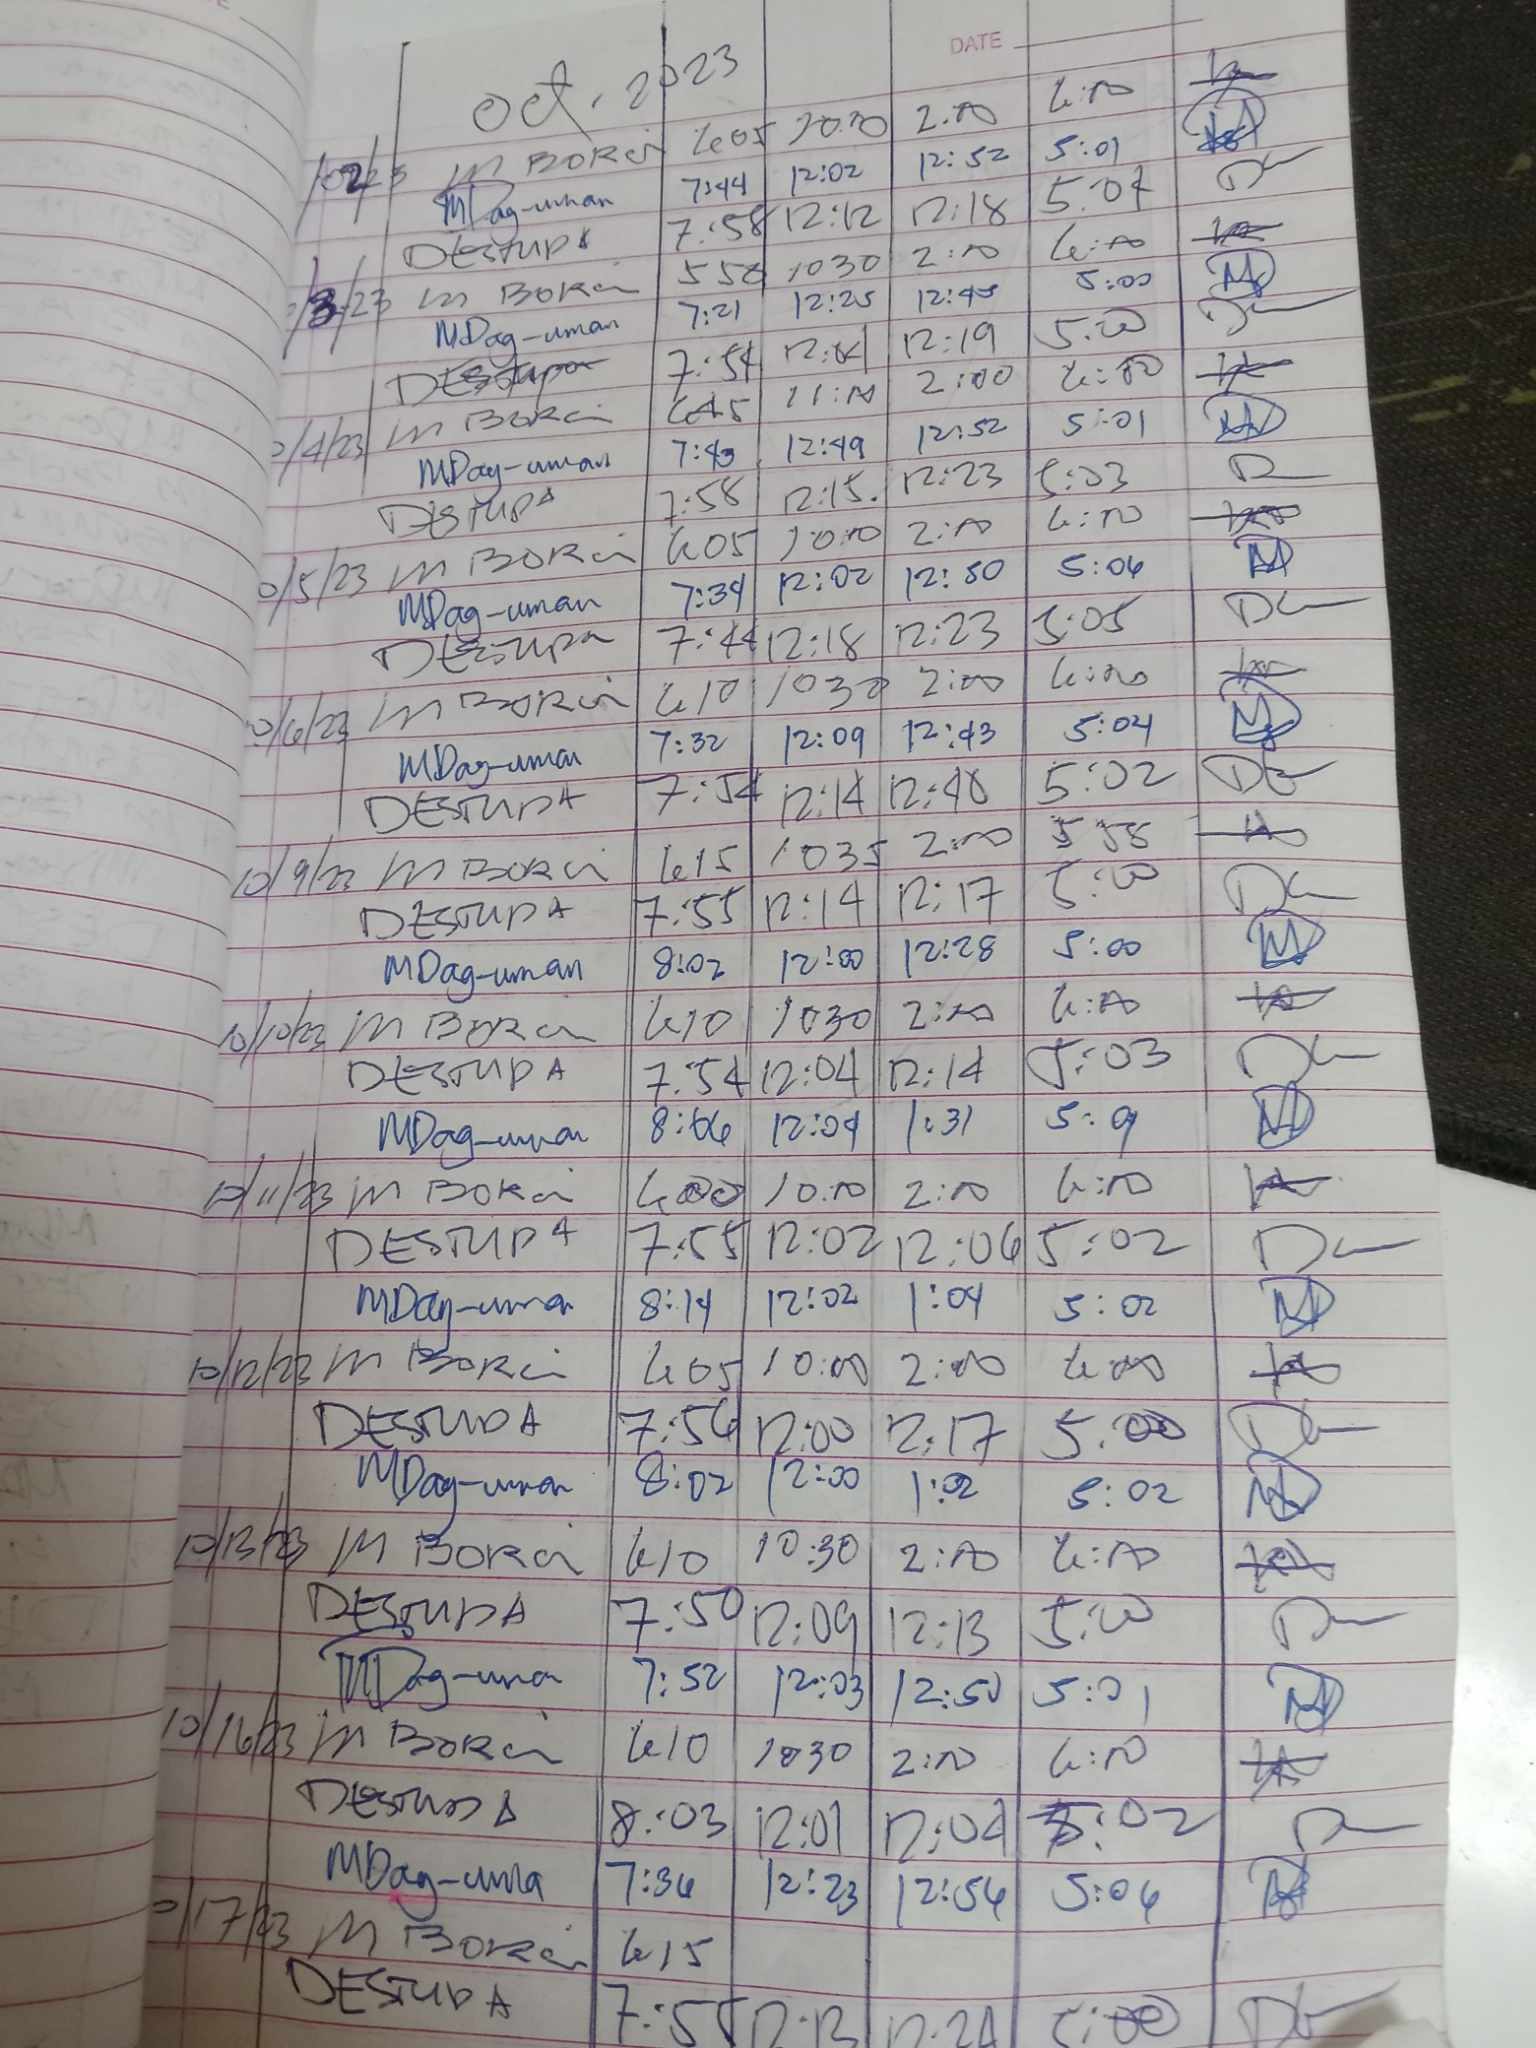 DATE
Oct. 2023
10/2/23 M BORCI 605 10:30 2:00 6:00
MDag-uman 7:44 12:02 12:52 5:01
DESTUPA 7:58 12:12 12:18 5:04
10/3/23 M BORCI 550 1030 2:00 6:00
MDag-uman 7:21 12:25 12:45 5:00
DEStupa 7:54 12:19 5:00
10/4/23 M BORCI 11:00 2:00 6:00
MDag-uman 7:43 12:49 12:52 5:01
DESTUPA 7:58 12:15. 12:23 5:03
10/5/23 M BORCI 605 10:00 2:00 6:00
MDag-uman 7:34 12:02 12:50 5:06
DESTUPA 7:44 12:18 12:23 5:05
10/6/23 M BORCI 610 1030 2:00 6:00
MDag-uman 7:32 12:09 12:43 5:04
DESTUPA 7:54 12:14 12:40 5:02
10/9/23 M BORCI 615 1035 2:00 5 58
DESTUPA 7:55 12:14 12:17 5:00
MDag-uman 8:02 12:00 12:28 5:00
10/10/23 M BORCI 610 1030 2:00 6:00
DESTUPA 7:54 12:04 12:14 5:03
MDag-uman 8:06 12:04 1:31
10/11/23 M BORCI 600 10:00 2:00 6:00
DESTUPA 7:55 12:02 12:06 5:02
MDag-uman 8:14 12:02 1:04 5:02
10/12/23 M BORCI 605 10:00 2:00 6:00
DESTUPA 7:56 12:00 12:17 5:00
MDag-uman 8:02 12:00 1:02 5:02
10/13/23 M BORCI 610 10:30 2:00 6:00
DESTUPA 7:50 12:09 12:13 5:00
MDag-uman 7:52 12:03 12:50 5:01
10/16/23 M BORCI 610 1030 2:00 6:00
DESTUPA 8:03 12:01 12:04 5:02
MDag-uma 7:36 12:23 12:56 5:06
10/17/23 M BORCI 615
DESTUPA 7:55 12:13 12:24 5:00